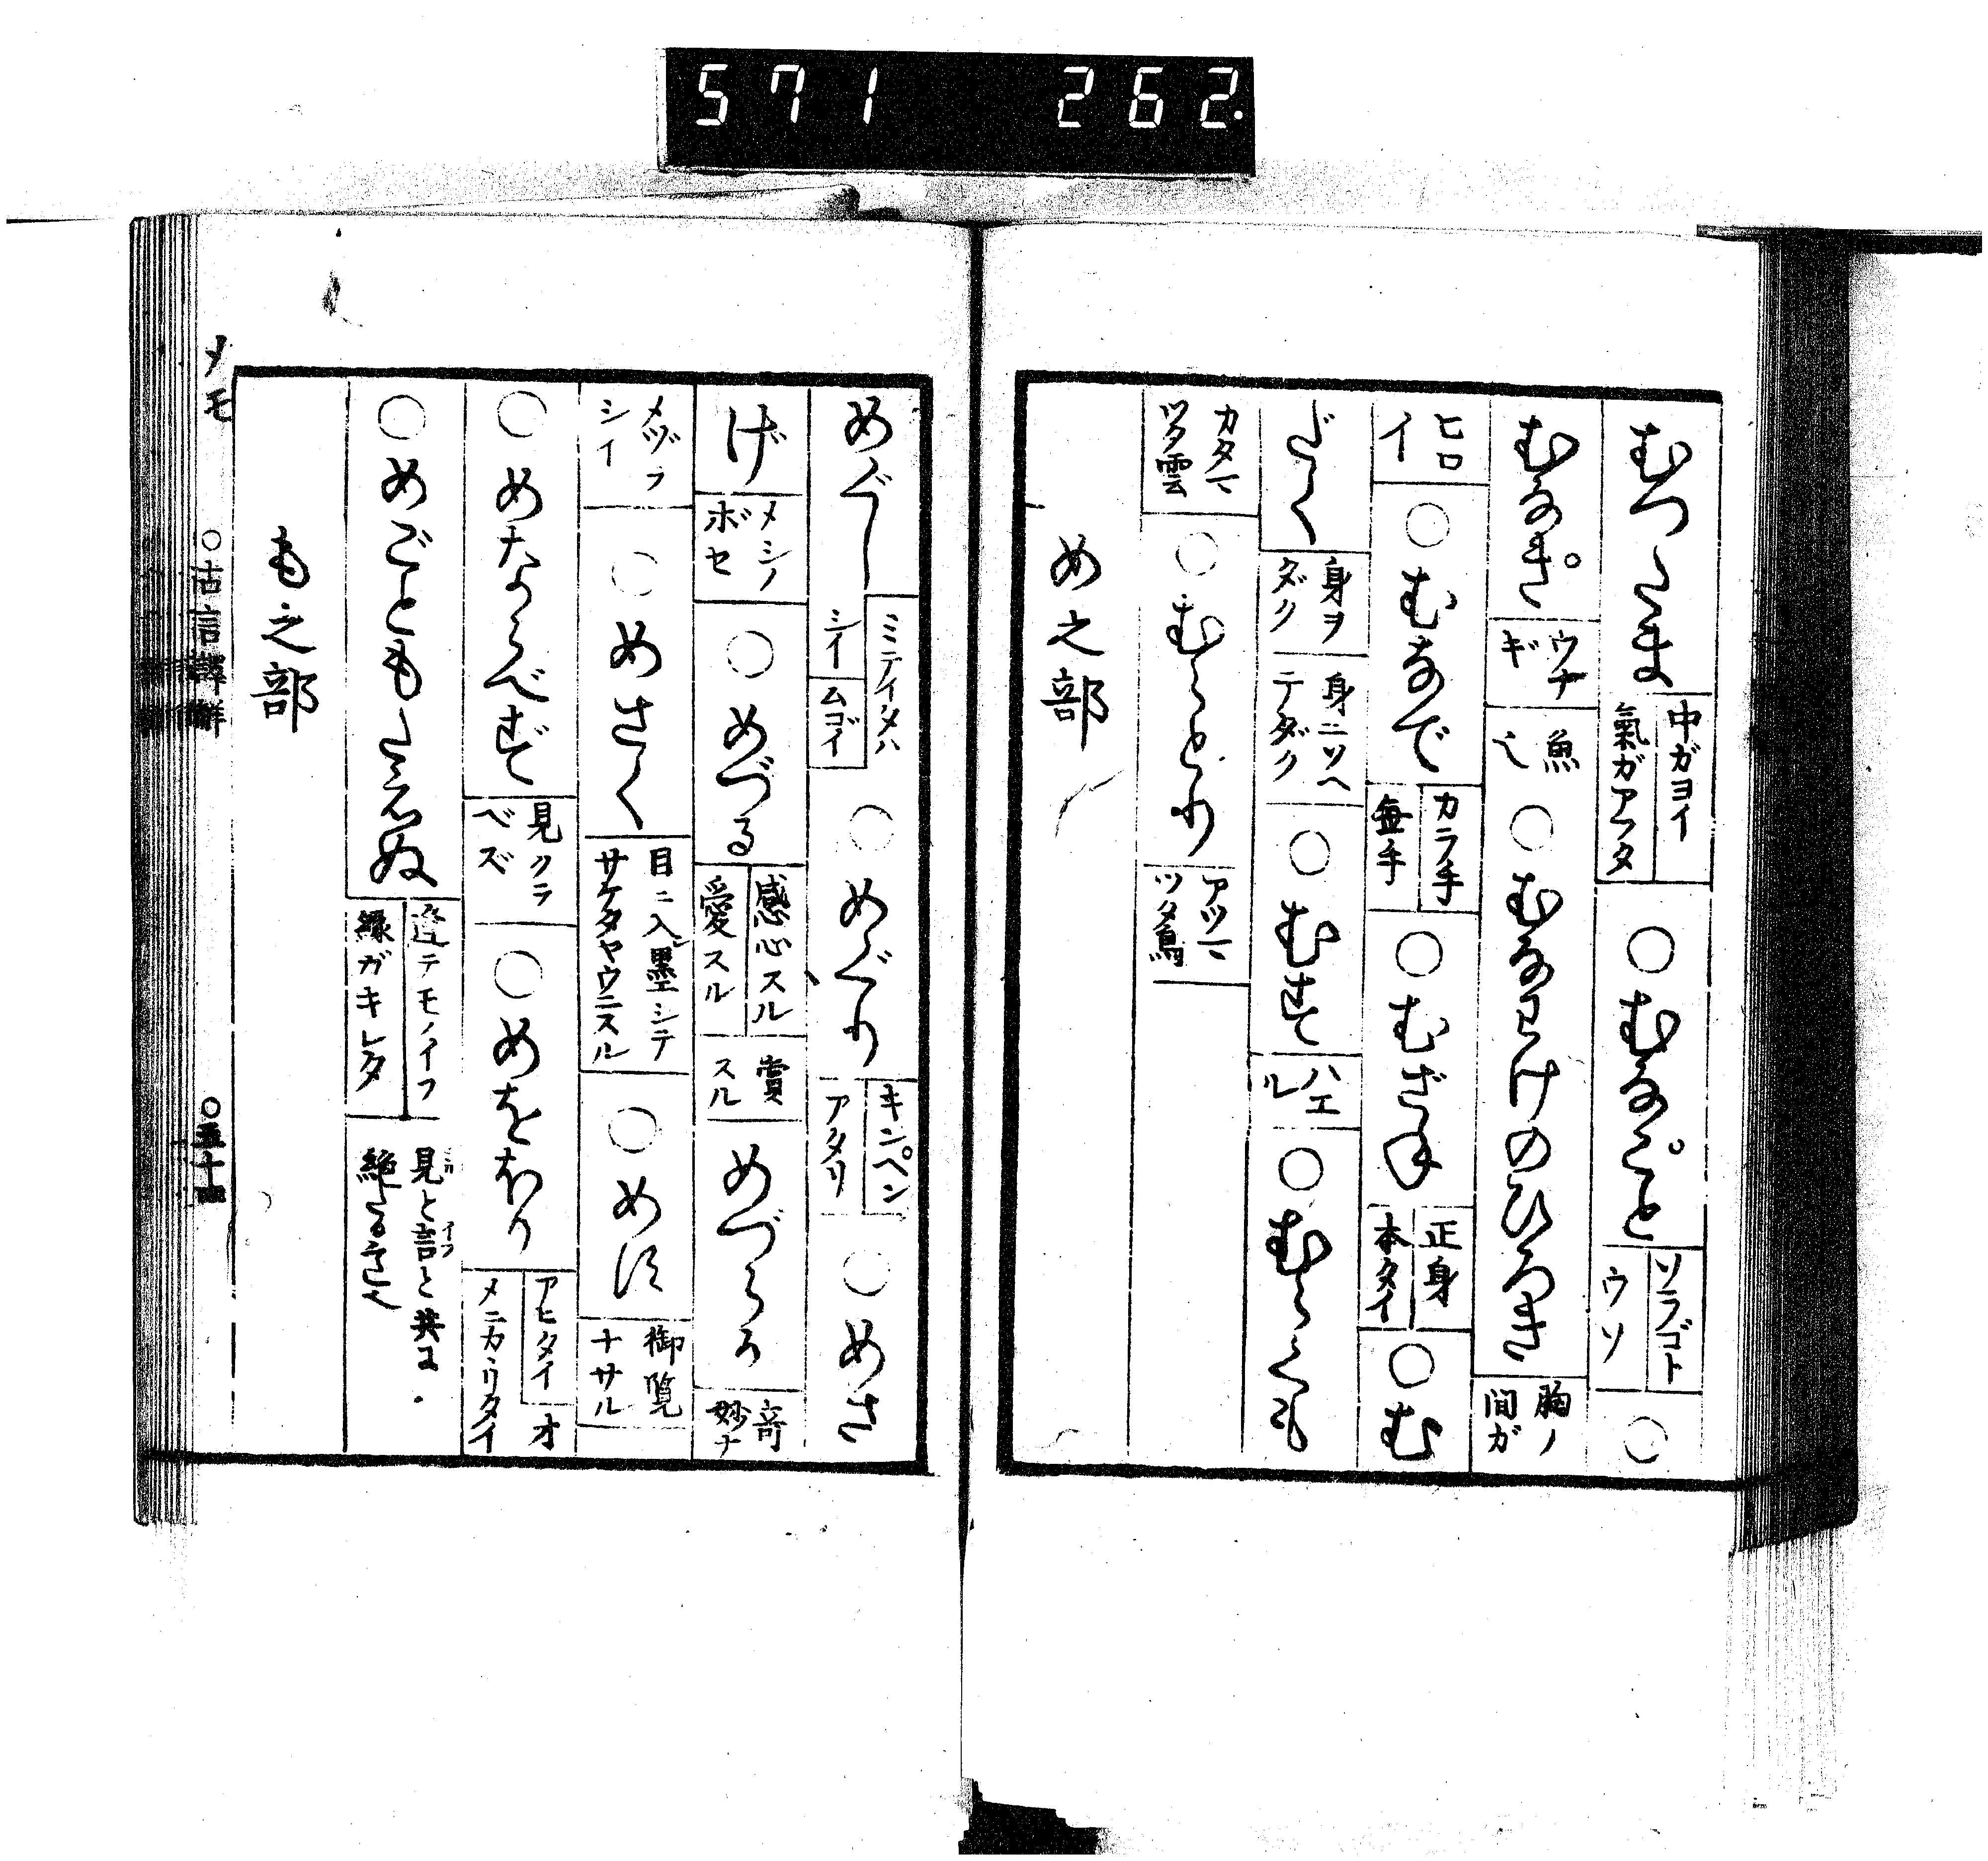 571 262.
むつたま 中ガヨイ 氣ガアフタ ○むなこと ソラゴト ウソ ○
むなぎ ウナギ 魚 ○むなわけのひろき 胸ノ間ガ
ヒロイ ○むなで カラ手 無手 ○むざね 正身 本タイ ○む
だく 身ヲダク 身ニソヘテダク ○むす ハエル ○むらくも
カタマツタ雲 ○むらとり アツマツタ鳥
め之部
めぐし ミテイヌハシイ ムゴイ ○めぐり キンペン アタリ ○めさ
げ メシノボセ ○めづる 感心スル 愛スル 賞スル めづらか 奇妙ナ
メヅラシイ ○めさく 目ニ入墨シテサケタヤウニスル ○めす 御覧ナサル
○めならべず 見クラベズ ○めをほり アヒタイ オメニカヽリタイ
○めごともたえぬ 逢テモノイフ縁ガキレタ 見と言と共に絶る
も之部
メモ ○古言譯解 ○五十四